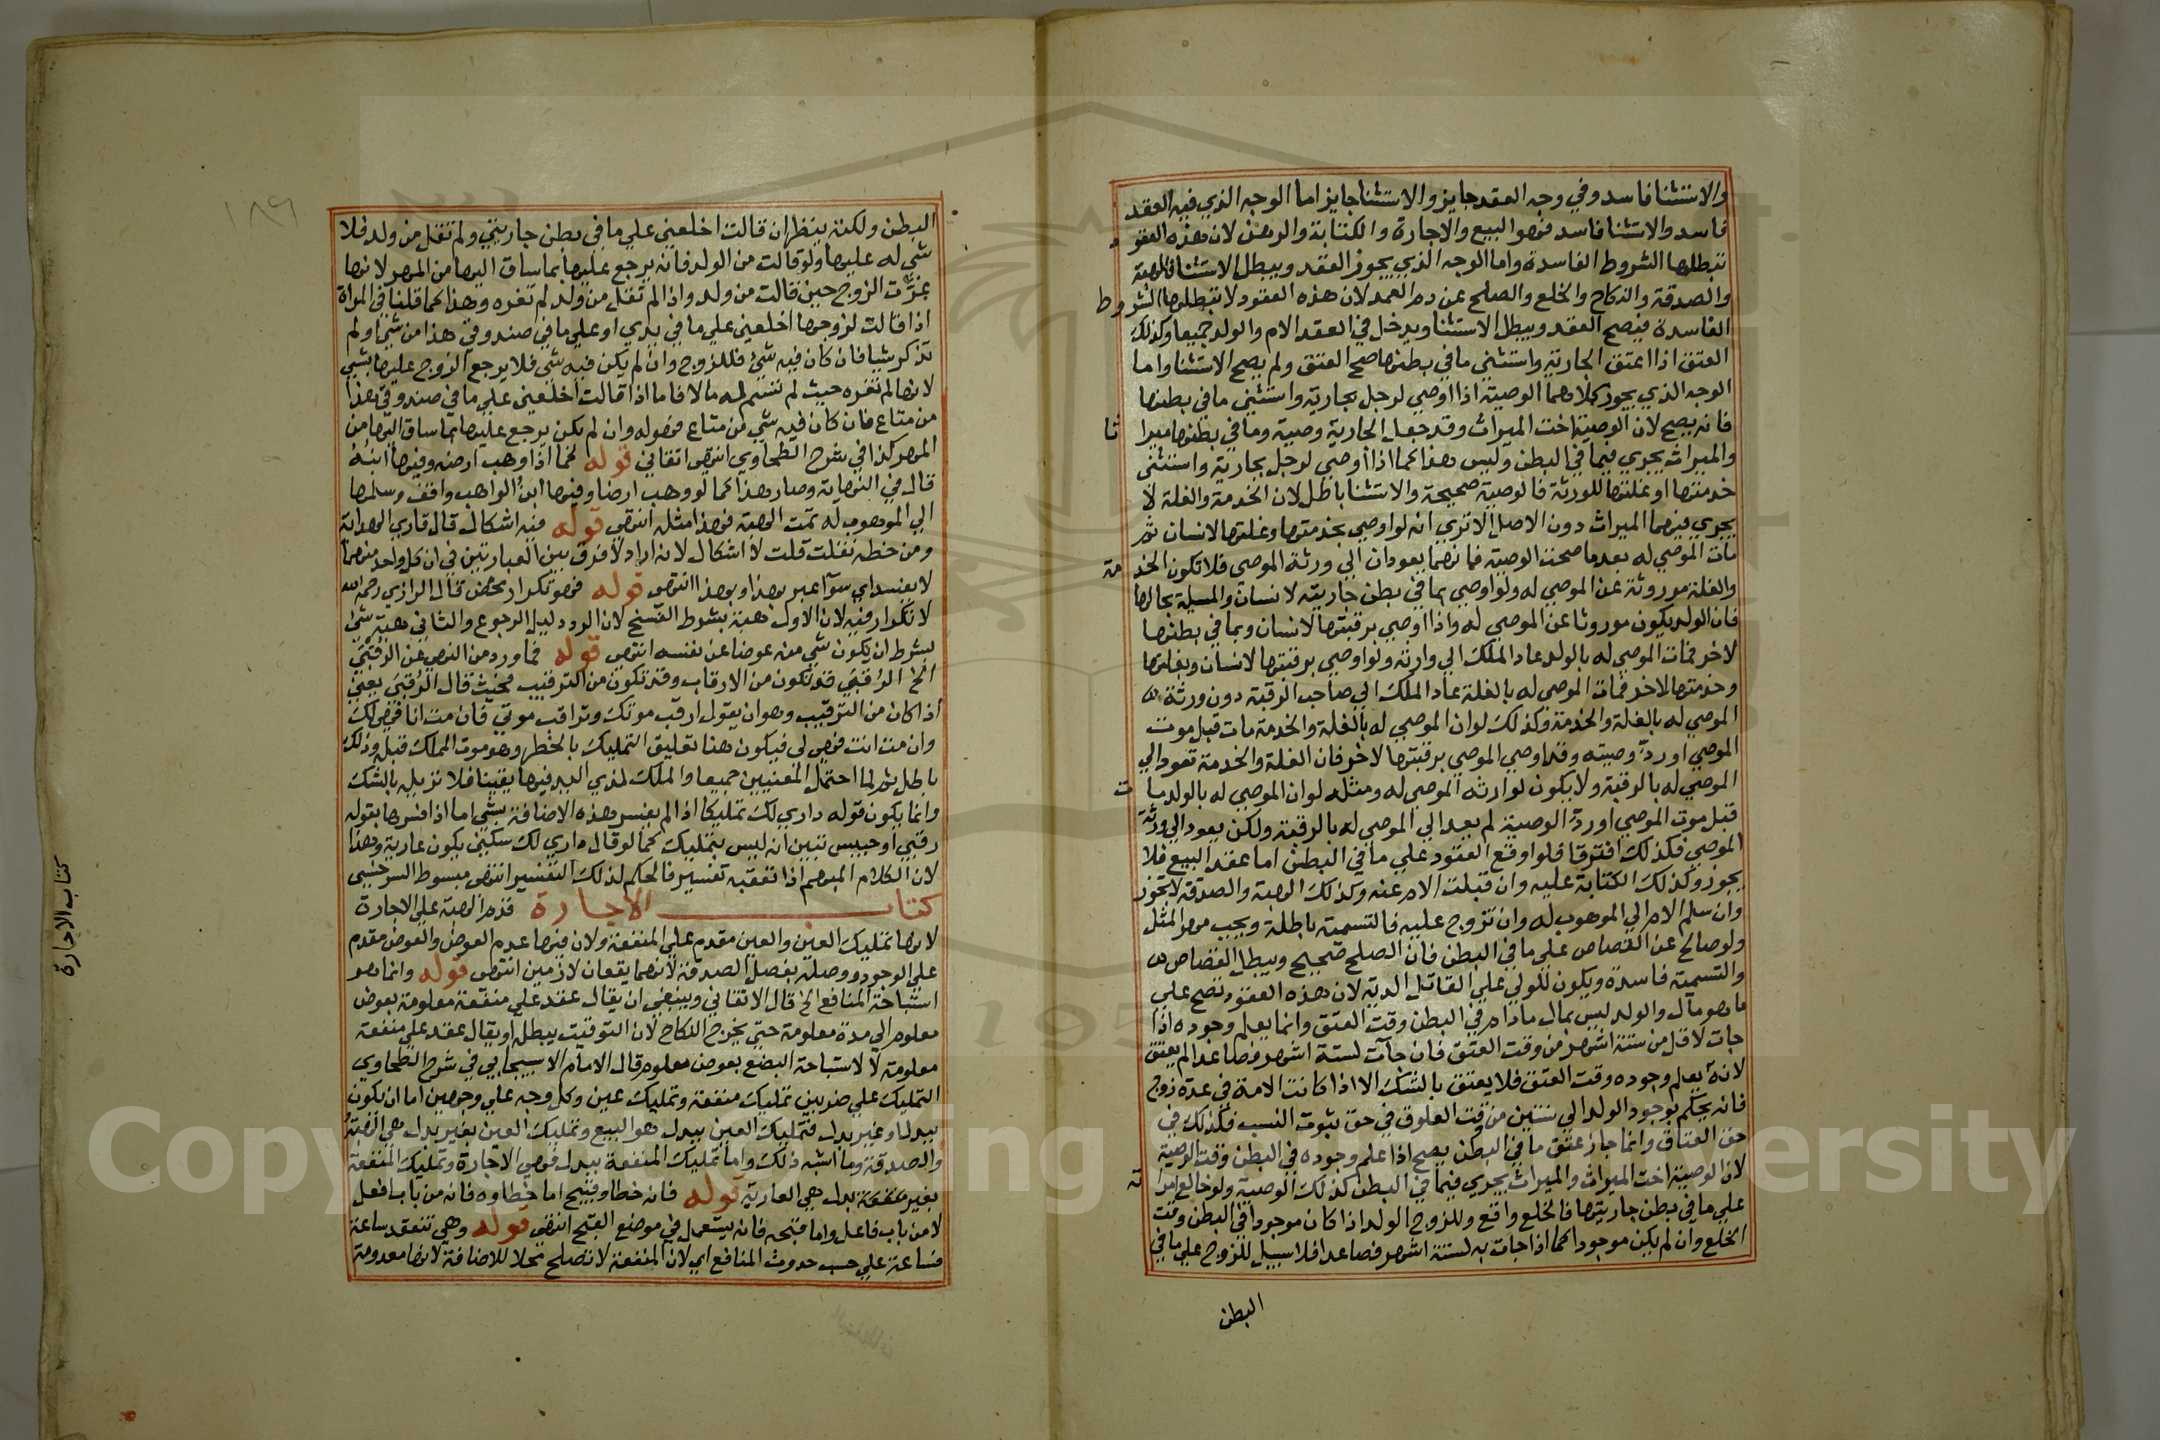 والاستثنا فاسد وفي وجه العقد جايز والاستثنا جايز اما الوجه الذي فيه العقد
فاسد والاستثنا فاسد فهو البيع والاجارة والكتابة والرهن لان هذه العقود
تبطلها الشروط الفاسدة واما الوجه الذي يجوز العقد ويبطل الاستثنا فالهبة
والصدقة والنكاح والخلع والصلح عن دم العمد لان هذه العقود لا تبطلها الشروط
الفاسدة فيصح العقد ويبطل الاستثنا ويدخل في العقد الام والولد جميعا وكذلك
العتق اذا اعتق الجارية واستثني ما في بطنها صح العتق ولم يصح الاستثنا واما
الوجه الذي يجوز كلاهما الوصية اذا اوصي لرجل بجارية واستثني ما في بطنها
فانه يصح لان الوصية اخت الميراث وقد جعل الجارية وصية وما في بطنها ميراثا
والميراث يجري فيما في البطن وليس هذا كما اذا اوصي لرجل بجارية واستثني
خدمتها او غلتها للورثة فالوصية صحيحة والاستثنا باطل لان الخدمة والغلة لا
يجري فيهما الميراث دون الاصل الا تري انه لو اوصي بخدمتها وغلتها لانسان ثم
مات الموصي له بعدما صحت الوصية فانهما يعودان الي ورثة الموصي فلا تكون الخدمة
والغلة موروثة عن الموصي له ولو اوصي بما في بطن جاريته لانسان والمسيلة بحالها
فان الولد يكون موروثا عن الموصي له واذا اوصي برقبتها لانسان وبما في بطنها
لاخر فمات الموصي له بالولد عاد الملك الي وارثه ولو اوصي برقبتها لانسان وبغلتها
وخدمتها لاخر فمات الموصي له بالغلة عاد الملك الي صاحب الرقبة دون ورثة
الموصي له بالغلة والخدمة وكذلك لو ان الموصي له بالغلة والخدمة مات قبل موت
الموصي او رد وصيته وقد اوصي الموصي برقبتها لاخر فان الغلة والخدمة تعود الي
الموصي له بالرقبة ولا يكون لوارثه الموصي له ومثله لو ان الموصي له بالولد مات
قبل موت الموصي او رد الوصية لم يعد الي الموصي له بالرقبة ولكن يعود الي ورثة
الموصي فكذلك افترقا فلو اوقع العقود علي ما في البطن اما عقد البيع فلا
يجوز وكذلك الكتابة عليه وان قبلت الام عنه وكذلك الهبة والصدقة لا تجوز
وان سلم الام الي الموهوب له وان تزوج عليه فالتسمية باطلة ويجب مهر المثل
ولو صالح عن القصاص علي ما في البطن فان الصلح صحيح ويبطل القصاص
والتسمية فاسدة ويكون للولي علي القاتل الدية لان هذه العقود تصح علي
ما هو مال والولد ليس بمال مادام في البطن وقت العتق وانما يعلم وجوده اذا
جات لاقل من ستة اشهر من وقت العتق فان جآت لستة اشهر فصاعدا لم يعتق
لانه يعلم وجوده وقت العتق فلا يعتق بالشك الا اذا كانت الامة في عدة زوج
فانه يحكم بوجود الولد الي سنتين من وقت العلوق في حق ثبوت النسب فكذلك في
حق العتاق وانما جاز عتق ما في البطن يصح اذا علم وجوده في البطن وقت الوصية
لان الوصية اخت الميراث والميراث يجري فيما في البطن كذلك الوصية ولو خالع امراته
علي ما في بطن جاريتها فالخلع واقع وللزوج الولد اذا كان موجودا في البطن وقت
الخلع وان لم يكن موجودا كما اذا جات به لستة اشهر فصاعدا فلا سبيل للزوج علي ما في
البطن
١٨٦
البطن ولكنه ينظر ان قالت اخلعني علي ما في بطن جاريتي ولم تقل من ولد فلا
شي له عليها ولو قالت من الولد فانه يرجع عليها بما ساق اليها من المهر لانها
غرت الزوج حين قالت من ولد واذا لم تقل من ولد لم تغره وهذا كما قلنا في المراة
اذا قالت لزوجها اخلعني علي ما في يدي او علي ما في صندوقي هذا من شي او لم
تذكر شيا فان كان فيه شي فللزوج وان لم يكن فيه شي فلا يرجع الزوج عليها بشي
لانها لم تغره حيث لم تسم له مالا فاما اذا قالت اخلعني علي ما في صندوقي هذا
من متاع فان كان فيه شي من متاع فهو له وان لم يكن يرجع عليها بما ساق اليها من
المهر كذا في شرح الطحاوي انتهي اتقاني قوله كما اذا وهب ارضه وفيها ابنه
قال في النهاية وصار هذا كما لو وهب ارضا وفيها ابن الواهب واقف وسلمها
الي الموهوب له تمت الهبة فهذا مثله انتهي قوله فيه اشكال قال قاري الهداية
ومن خطه نقلت قلت لا اشكال لانه اراد لا فرق بين العبارتين في ان كل واحد منهما
لا يفسد اي سوآ عبر بهذا او بهذا انتهي قوله فهو تكرار محض قال الرازي رحمه الله
لا تكرار فيه لان الاول هبة بشرط الفسخ لان الرد دليل الرجوع والثاني هبة شي
بشرط ان يكون شي منه عوضا عن نفسه انتهي قوله فما ورد من النهي عن الرقبي
الخ الرقبي قد تكون من الارقاب وقد تكون من الترقيب فحيث قال الرقبي يعني
اذا كان من الترقيب وهو ان يقول ارقب موتك وتراقب موتي فان مت انا فهي لك
وان مت انت فهي لي فيكون هذا تعليق التمليك بالخطر وهو موت المملك قبله وذلك
باطل ثم لما احتمل المعنيين جميعا والملك لذي اليد فيها يقينا فلا تزيله بالشك
وانما يكون قوله داري لك تمليكا اذا لم يفسر هذه الاضافة بشي اما اذا فسرها بقوله
رقبي او حبيس تبين انه ليس بتمليك كما لو قال داري لك سكني يكون عارية وهذا
لان الكلام المبهم اذا تعقبه تفسير فالحكم لذلك التفسير انتهي مبسوط السرخسي
كتاب الاجارة قدم الهبة علي الاجارة
لانها تمليك العين والعين مقدم علي المنفعة ولان فيها عدم العوض والعوض مقدم
علي الوجود ووصله بفصل الصدقة لانهما يقعان لازمين انتهي قوله وانما هو
استباحة المنافع الخ قال الاتقاني وينبغي ان يقال عقد علي منفعة معلومة بعوض
معلوم الي مدة معلومة حتي يخرج النكاح لان التوقيت يبطله او يقال عقد علي منفعة
معلومة لا لاستباحة البضع بعوض معلوم قال الامام الاسبيجابي في شرح الطحاوي
التمليك علي ضربين تمليك منفعة وتمليك عين وكل وجه علي وجهين اما ان يكون
ببدل او غير بدل فتمليك العين ببدل هو البيع وتمليك العين بغير بدل هي الهبة
والصدقة وما اشبه ذلك واما تمليك المنفعة ببدل فهي الاجارة وتمليك المنفعة
بغير بدل هي العارية قوله فانه خطا وقبيح اما خطاوه فانه من باب افعل
لا من باب فاعل واما قبحه فانه يستعمل في موضع القبح انتهي قوله وهي تنعقد ساعة
فساعة علي حسب حدوث المنافع اي لان المنفعة لا تصلح محلا للاضافة لانها معدومة
كتاب الاجارة